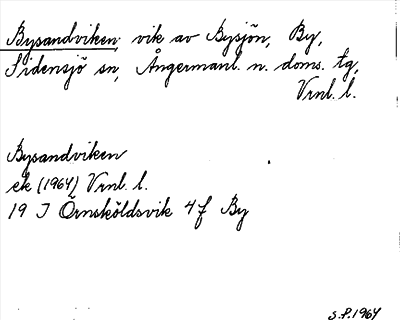 Bysandviken, vik av Bysjön, By,
Sidensjö sn, Ångermanl. n. doms. tg,
Vrnl. l.
Bysandviken
ek (1964) Vrnl. l.
19 J Örnsköldsvik 4 f By
S.P. 1964